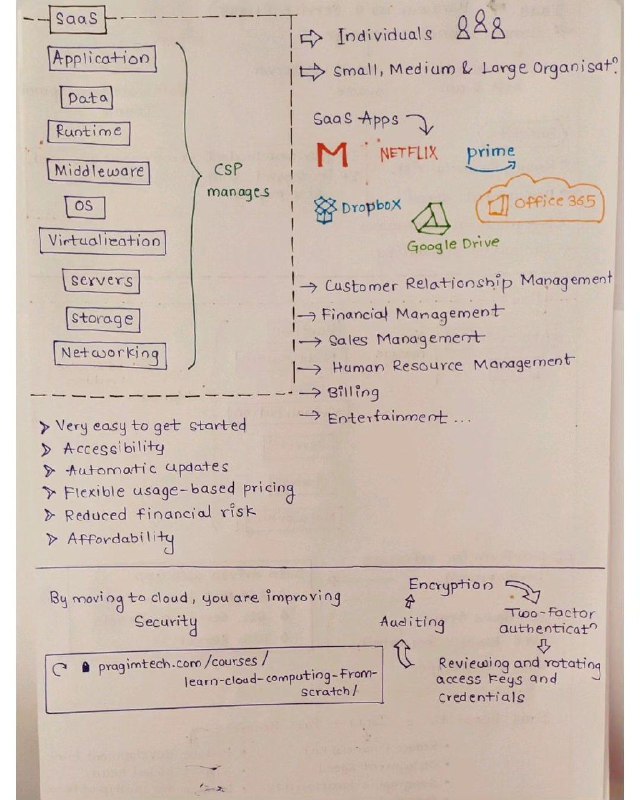 SaaS
Application
Data
Runtime
Middleware
OS
Virtualization
servers
storage
Networking
CSP
manages
Individuals
Small, Medium & Large Organisatⁿ
SaaS Apps
M
NETFLIX
prime
Dropbox
Google Drive
Office 365
Customer Relationship Management
Financial Management
Sales Management
Human Resource Management
Billing
Entertainment ...
Very easy to get started
Accessibility
Automatic updates
Flexible usage-based pricing
Reduced financial risk
Affordability
By moving to cloud, you are improving
Security
pragimtech.com/courses/
learn-cloud-computing-from-
scratch/
Encryption
Two-Factor
authenticatⁿ
Auditing
Reviewing and rotating
access keys and
credentials